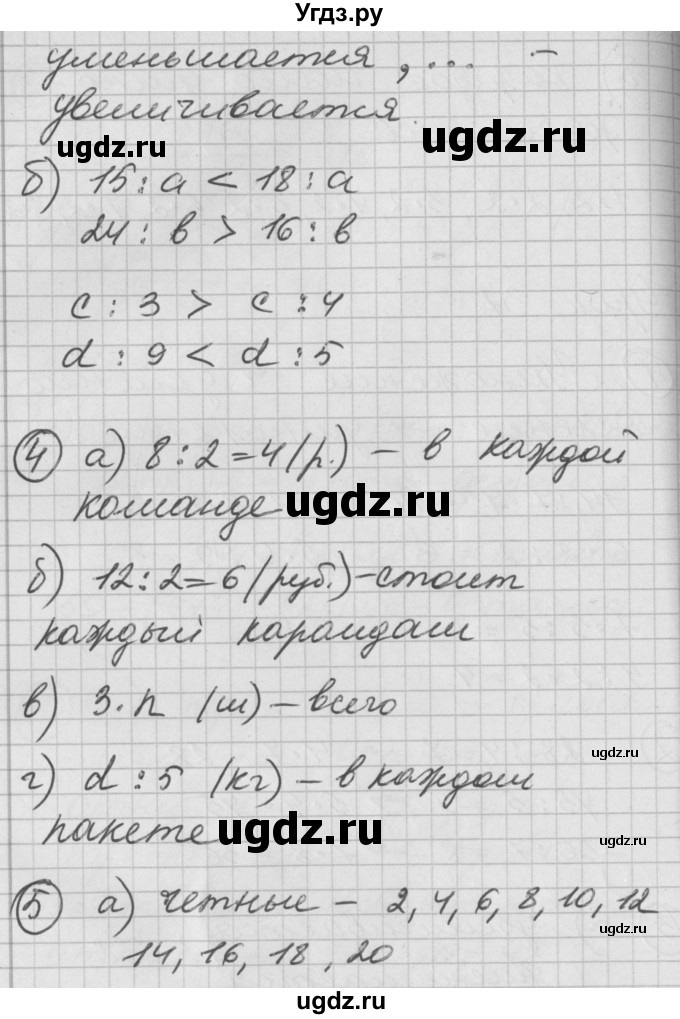 Угдз.ру
уменьшается, ... –
увеличивается.
ugdz.ru
ugdz.ru
б) 15 : a < 18 : a
24 : в > 16 : в
c : 3 > c : 4
d : 9 < d : 5
4 а) 8 : 2 = 4 (р.) – в каждой
команде
ugdz.ru
б) 12 : 2 = 6 (руб.) – стоит
каждый карандаш
в) 3 · n (ш) – всего
ugdz.ru
г) d : 5 (кг) – в каждом
пакете
ugdz.ru
ugdz.ru
5 а) четные – 2, 4, 6, 8, 10, 12
ugdz.ru
14, 16, 18, 20
ugdz.ru